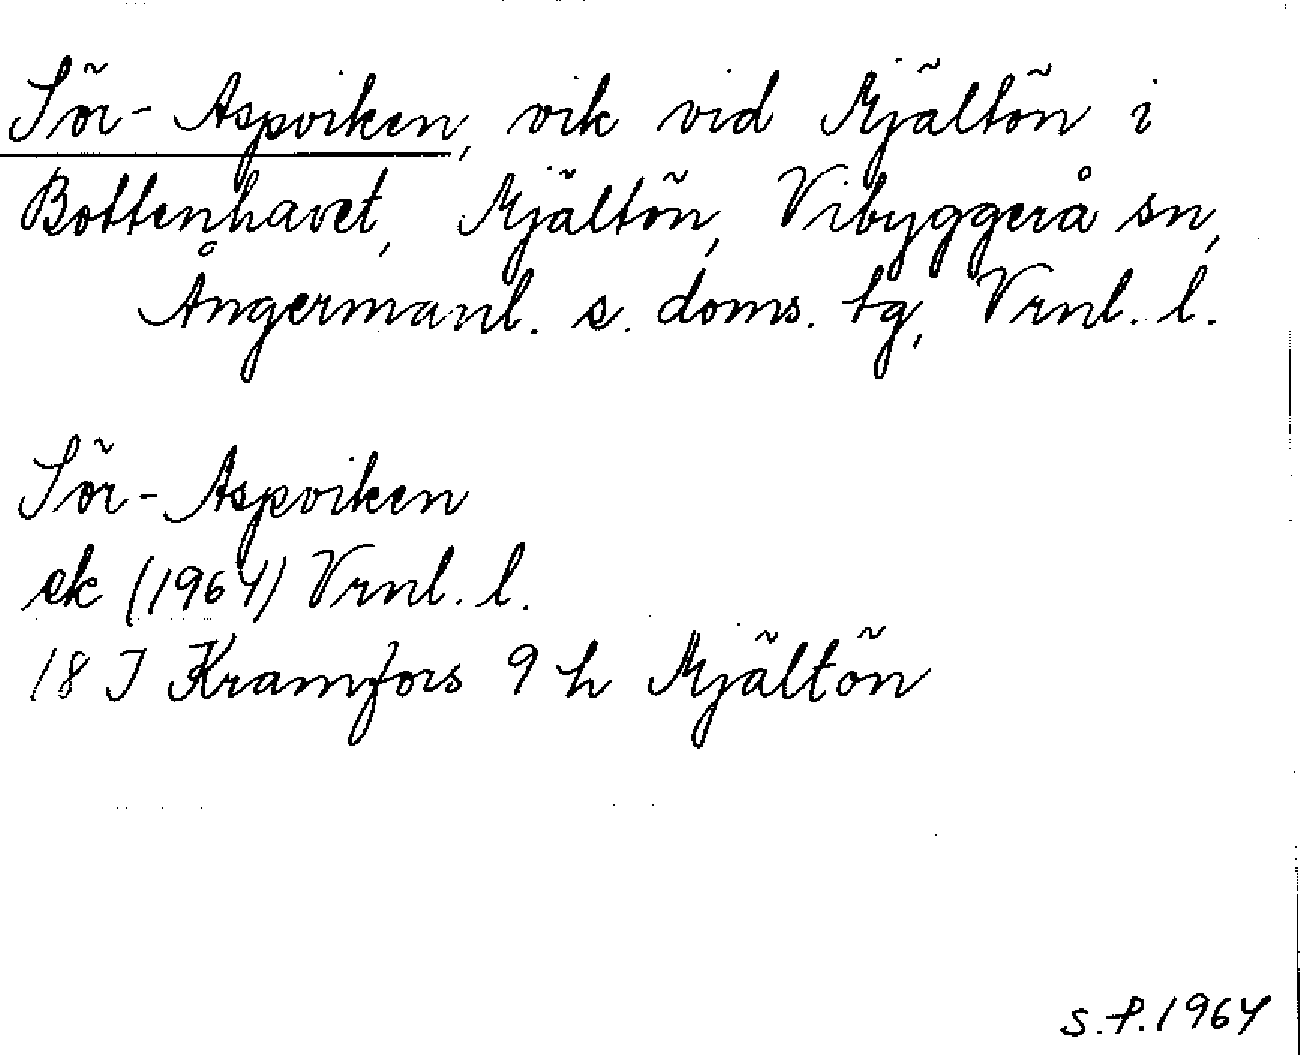 Sör-Aspviken, vik vid Mjältön i
Bottenhavet, Mjältön, Vibyggerå sn,
Ångermanl. s. doms. tg, Vrnl. l.
Sör-Aspviken
ek (1964) Vrnl. l.
18 I Kramfors 9 h Mjältön
S.P.1964